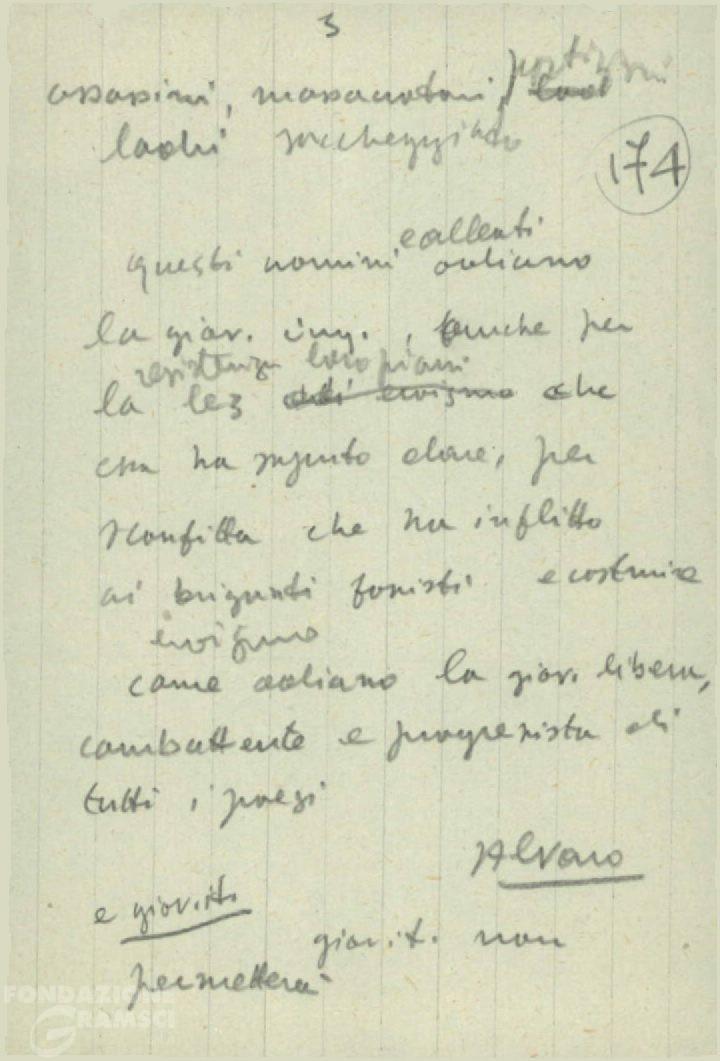 3
assassini, massacratori,
ladri saccheggiato
174
eccellenti
questi uomini odiano
la giov. ung., anche per
resistenza loro piani
la lez eroismo che
essa ha saputo dare, per
sconfitta che ha inflitto
ai briganti fascisti e costruire
eroismo
come odiano la giov. libera,
combattente e progressista di
tutti i paesi
Alvaro
e giov. it.
giov. it. non
permetterà
FONDAZIONE
GRAMSCI